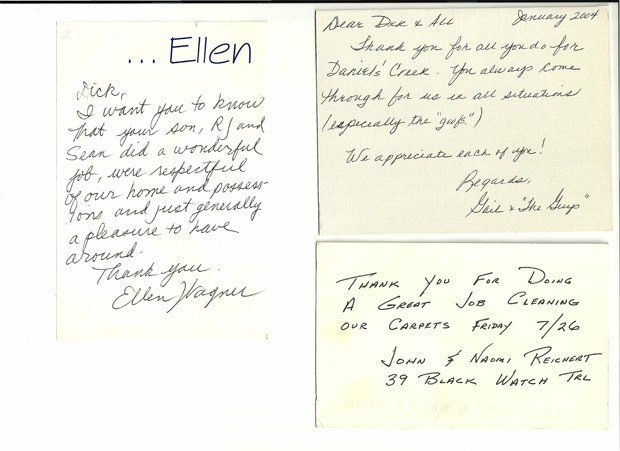 ... Ellen
Dick,
I want you to know
that your son, RJ and
Sean did a wonderful
job, were respectful
of our home and possess-
ions and just generally
a pleasure to have
around.
Thank you.
Ellen Wagner
Dear Dick & All
January 2004
Thank you for all you do for
Daniel's Creek. You always come
through for us in all situations
(especially the "goofs".)
We appreciate each of you!
Regards,
Gail & "The Guys"
Thank You For Doing
A Great Job Cleaning
our Carpets Friday 7/26
John & Naomi Reichert
39 Black Watch Trl